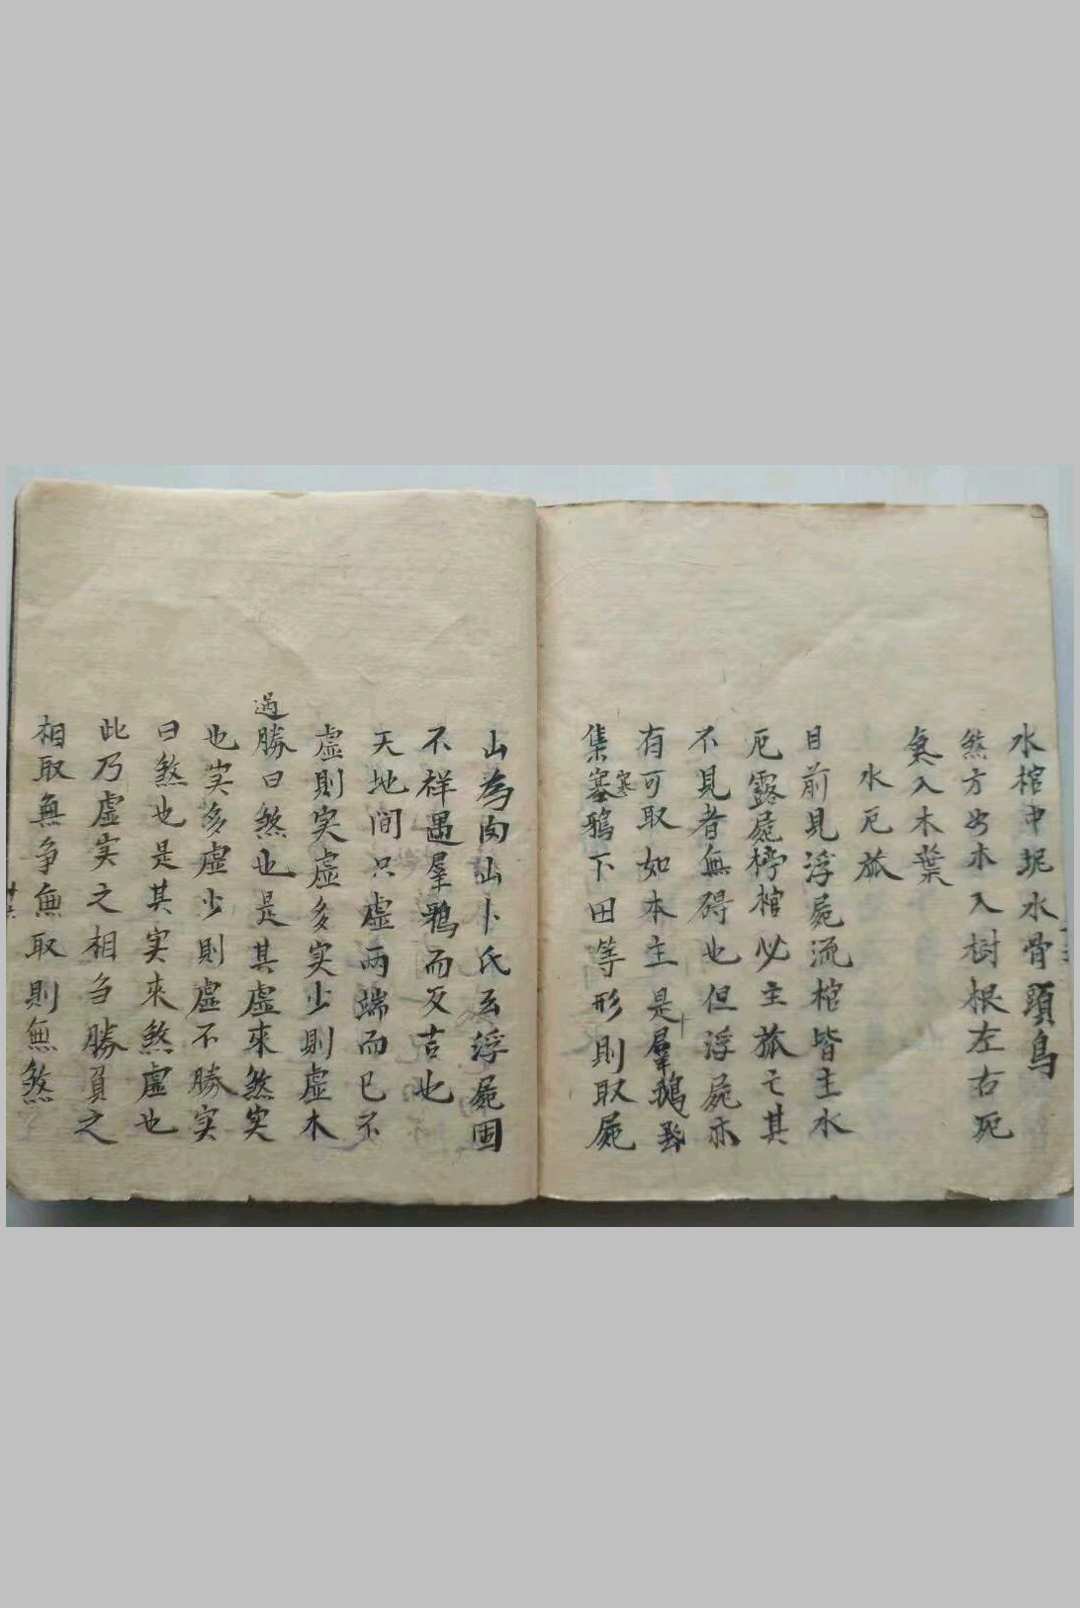 水棺中坭水骨頭鳥
煞方出木入樹根左右死
氣入木葉
水厄孤
目前見浮屍流棺皆主水
厄露屍停棺必主孤亡其
不見者無碍也但浮屍亦
有可取如本主是羣鵝
集寒鴉下田等形則取屍
山為肉山卜氏云浮屍固
不祥遇羣鴉而反吉也
天地間只虛两端而已不
虛則实虛多实少則虛木
過勝曰煞也是其虛來煞实
也实多虛少則虛不勝实
曰煞也是其实來煞虛也
此乃虛实之相為勝負之
相取無争無取則無煞